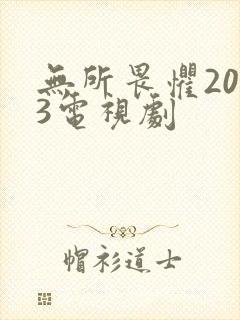 無所畏懼20
3電視劇
帽衫道士